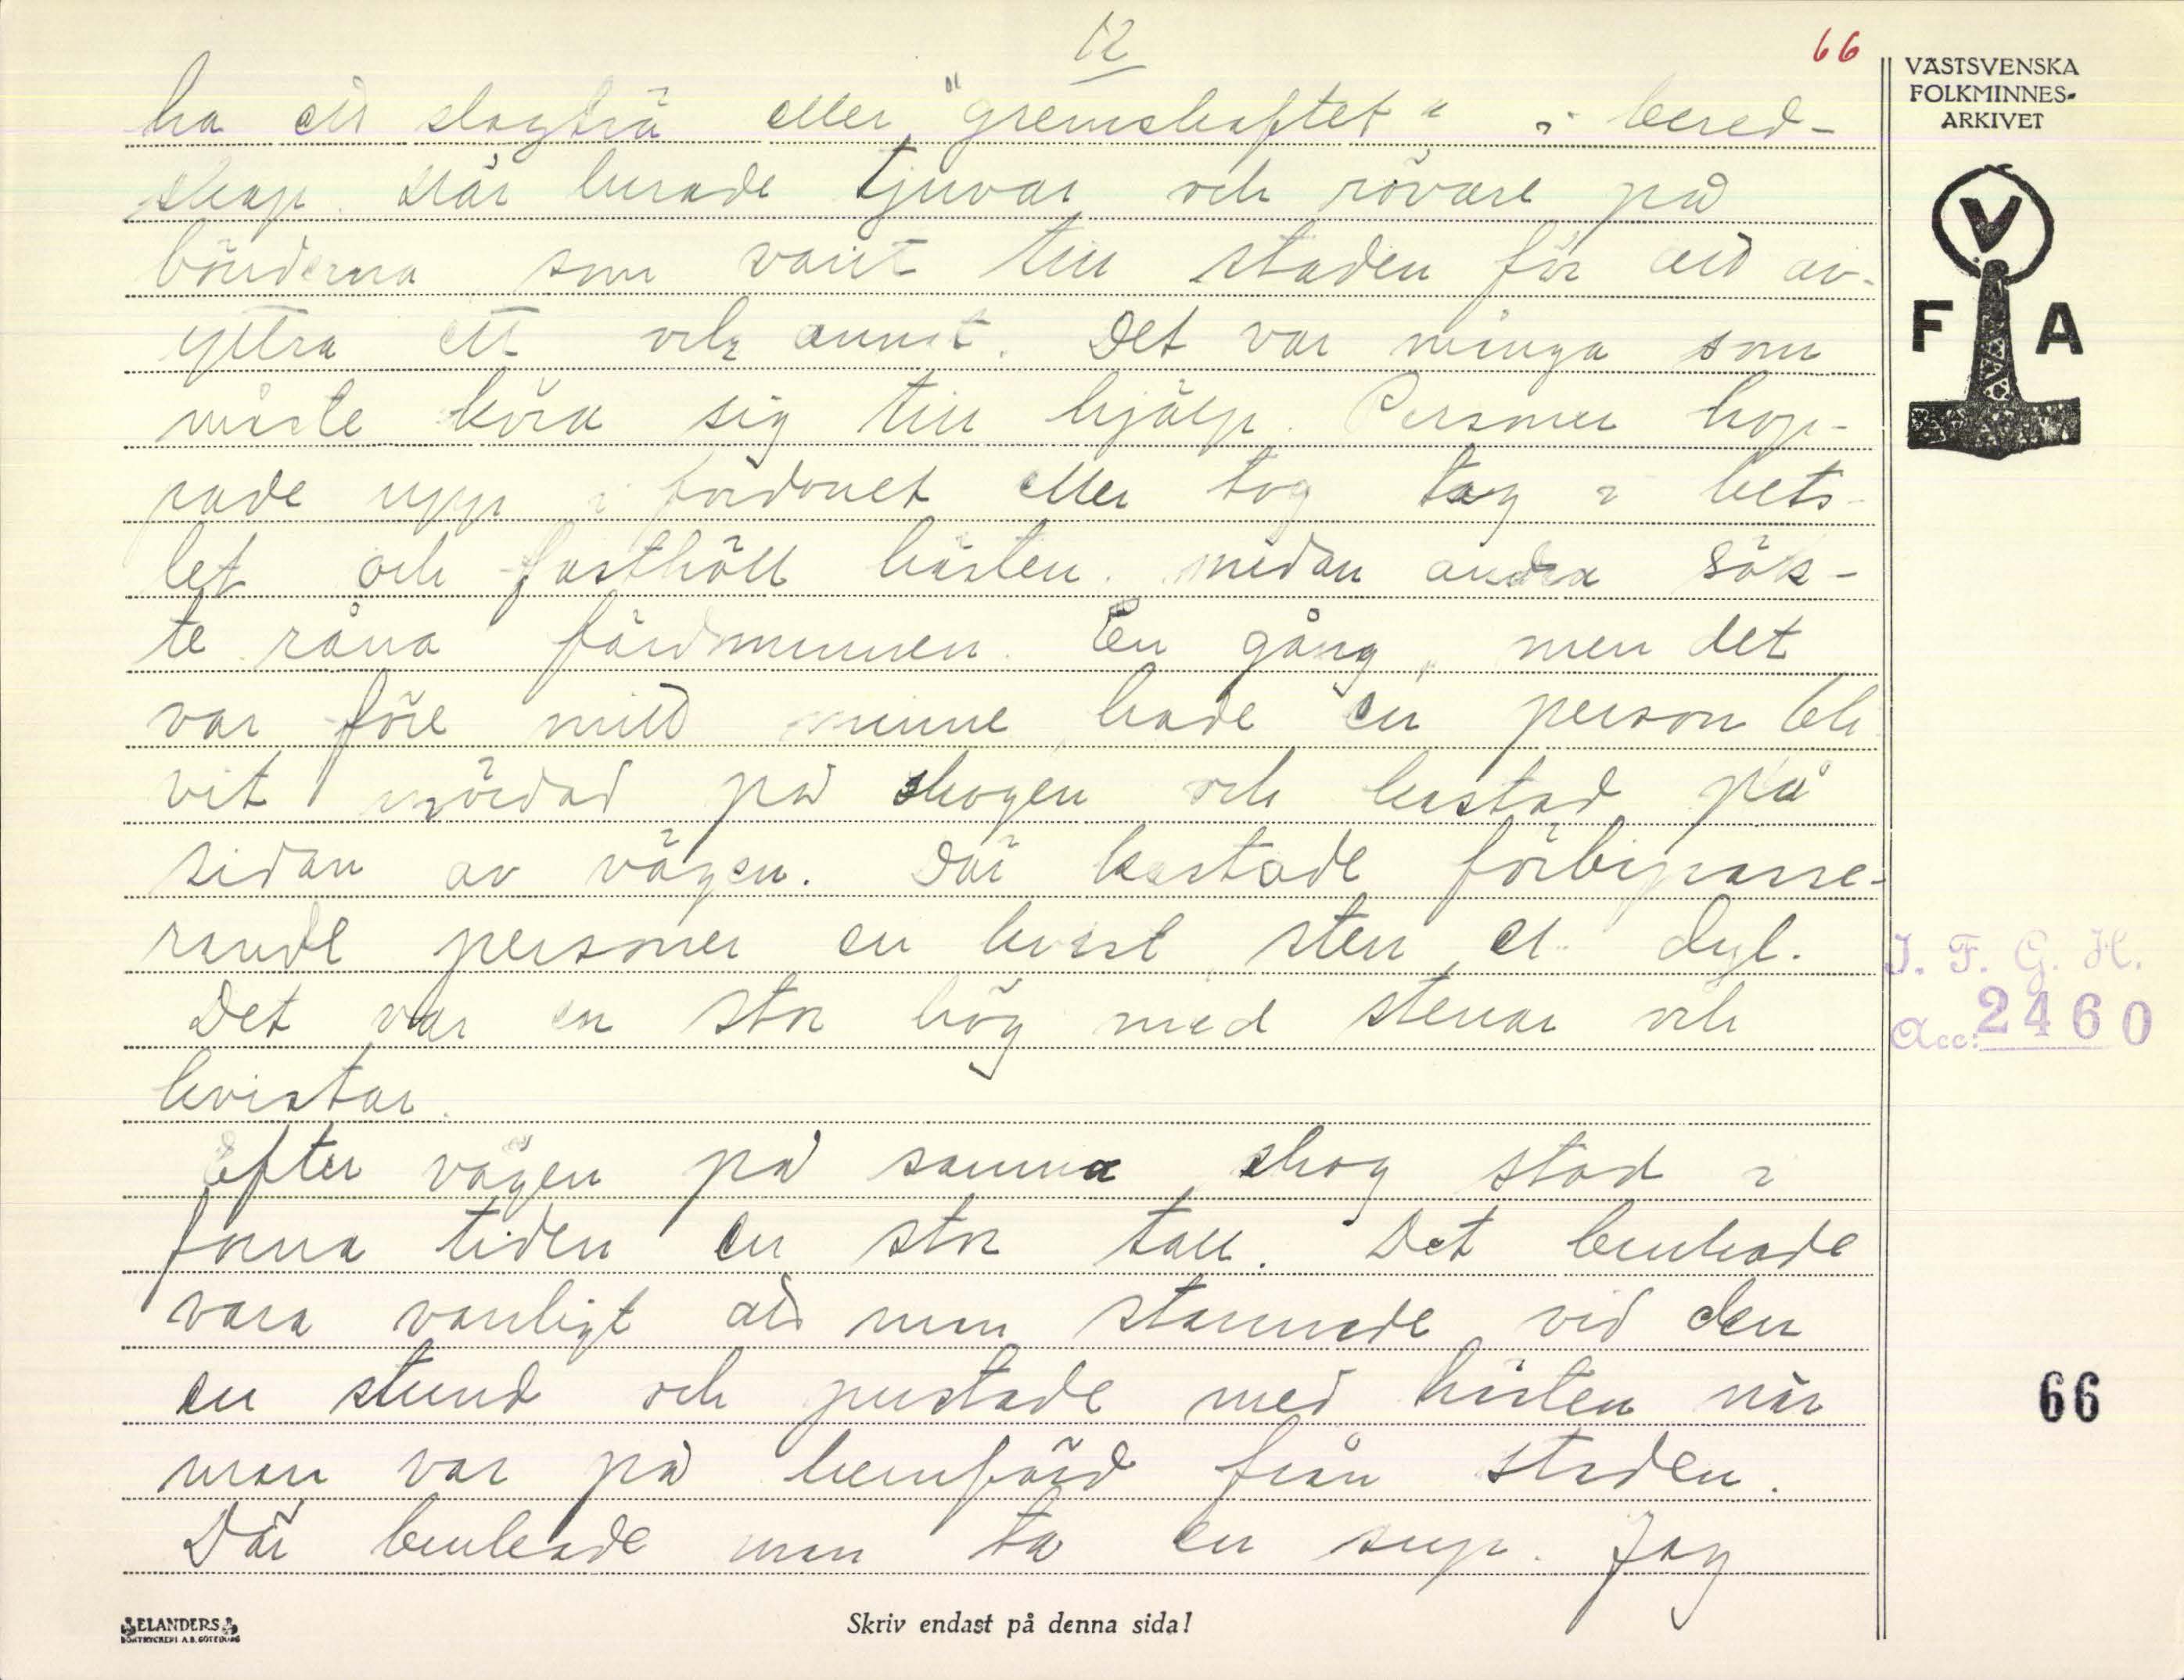 12
66
VÄSTSVENSKA
FOLKMINNES-
ARKIVET
V
F A
ha ett slagträ eller "gremskaftet" i bered-
skap. Här lurade tjuvar och rövare på
bönderna som varit till staden för att av-
yttra ett och annat. Det var många som
måste köra sig till hjälp. Personer hop-
pade upp i fordonet eller tog tag i bets-
let och fasthöll hästen. medan andra sök-
te råna färdmannen. En gång, men det
var före mitt minne, hade en person bli
vit mördad på skogen och kastad på
sidan av vägen. Där kastade förbipasse-
rande personer en kvist, sten el. dyl.
Det var en stor hög med stenar och
kvistar.
Efter vägen på samma skog stod i
forna tiden en stor tall. Det brukade
vara vanligt att man stannade vid den
en stund och pustade med hästen när
man var på hemfärd från staden.
Där brukade man ta en sup. Jag
J. F. G. H.
Acc: 2460
66
ELANDERS
BOKTRYCKERI A.B. GÖTEBORG
Skriv endast på denna sida!